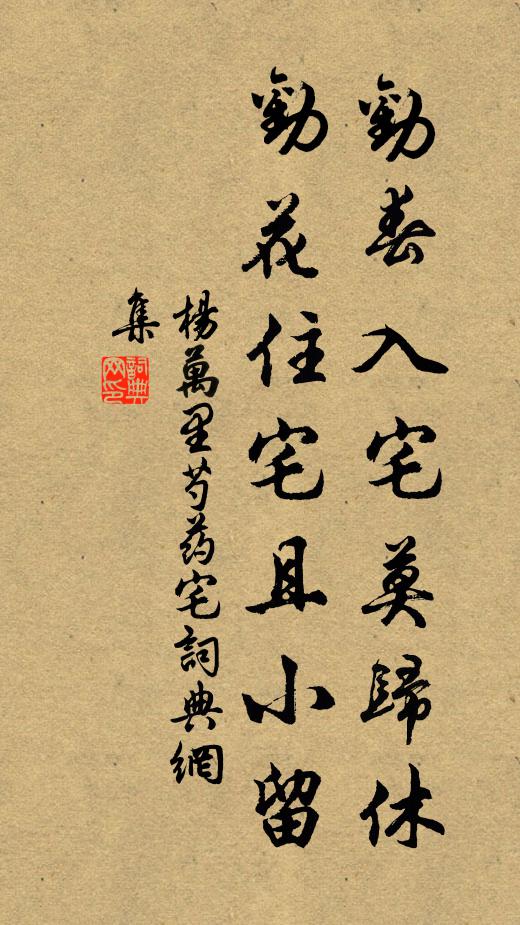 勸春入宅莫歸休
勸花住宅且小留
楊萬里芍药宅詞典網
集
詞典
网印